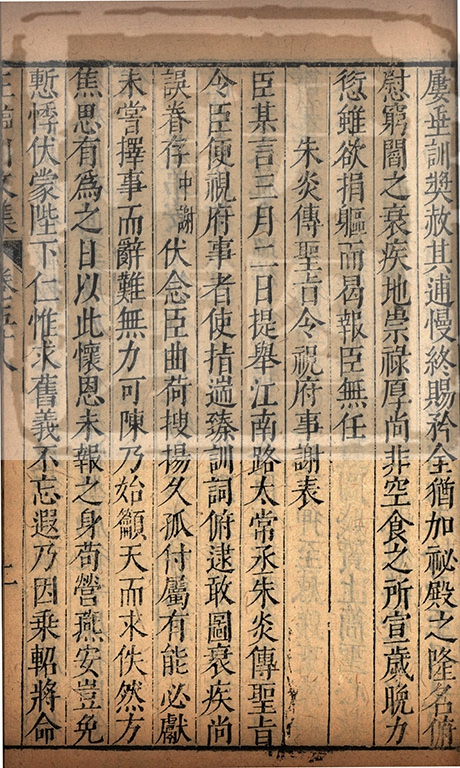 屢垂訓奬赦其逋慢終賜矜全猶加祕殿之隆名俯
慰窮閻之衰疾地崇祿厚尚非空食之所宣歲晚力
愆雖欲捐軀而曷報臣無任
朱炎傳聖旨令視府事謝表
臣某言三月二日提舉江南路太常丞朱炎傳聖旨
令臣便視府事者使指遄臻訓詞俯逮敢圖衰疾尚
誤眷存中謝伏念臣曲荷搜揚久孤付屬有能必獻
未嘗擇事而辭難無力可陳乃始籲天而求佚然方
焦思有爲之日以此懷恩未報之身苟營燕安豈免
慙悸伏蒙陛下仁惟求舊義不忘遐乃因乘軺將命
王臨川文集 卷五十八 十一